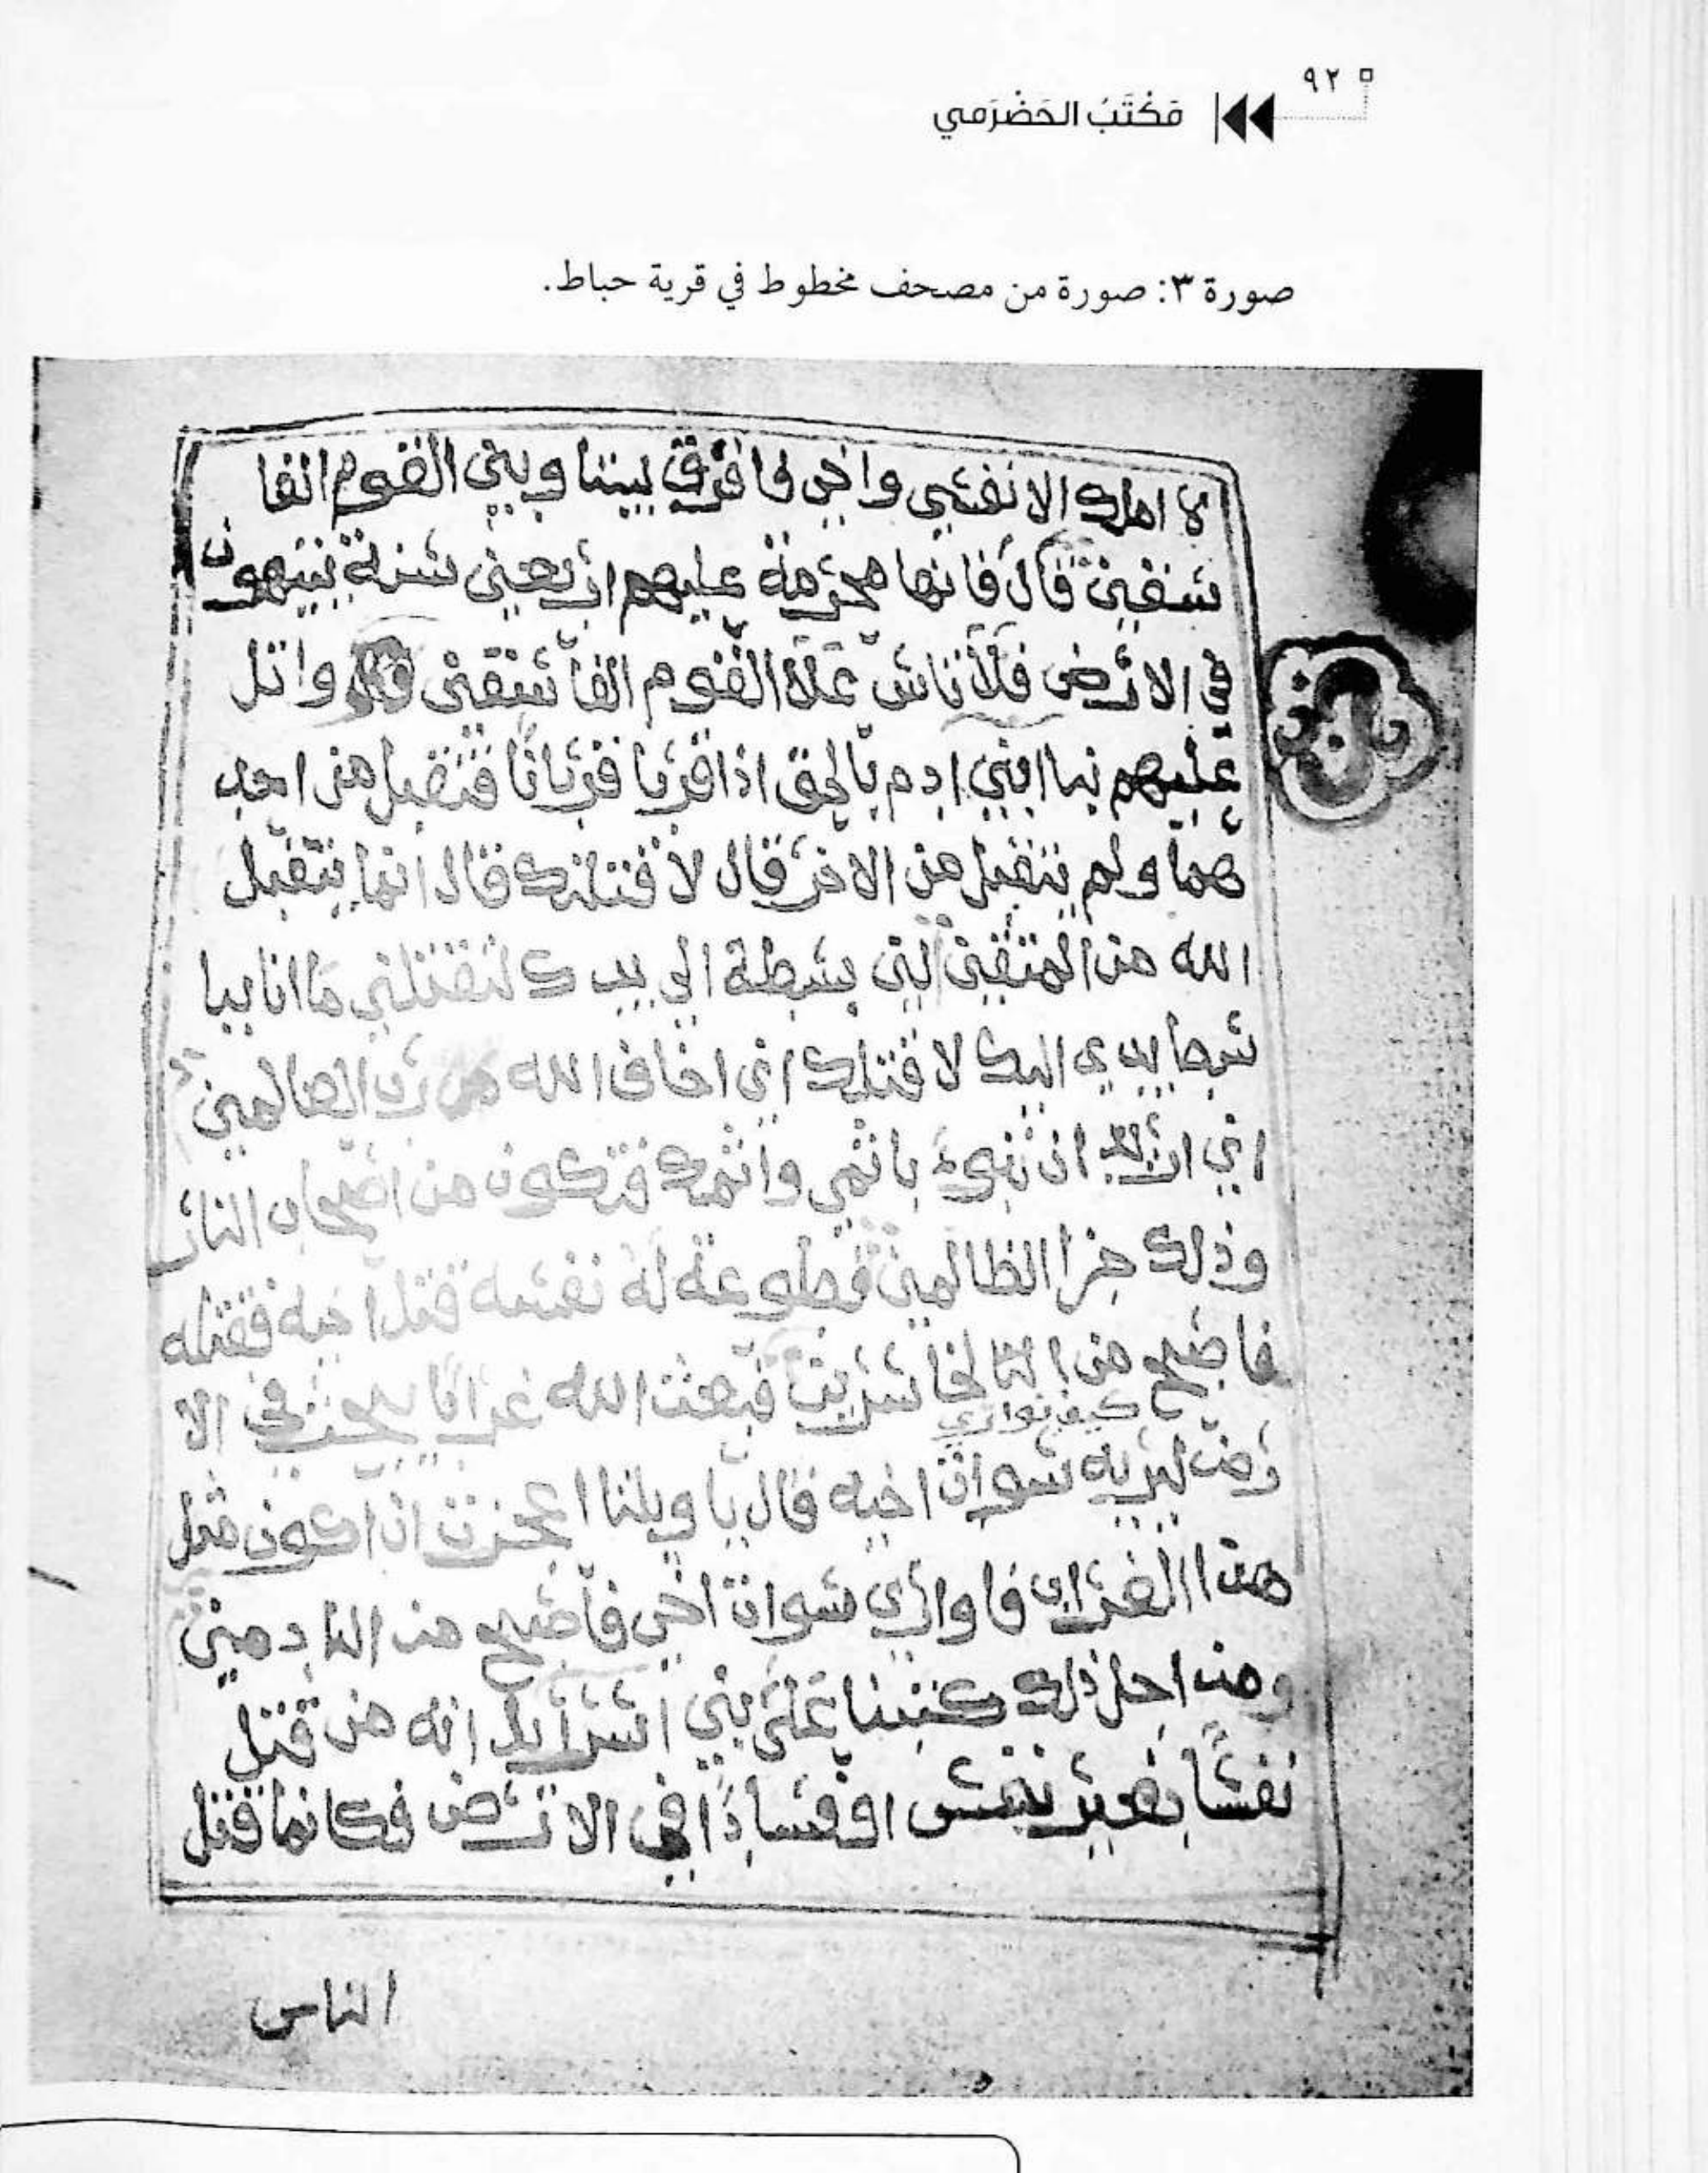 ٩٢
مَكْتَبُ الحَضْرَمي
صورة ٣: صورة من مصحف مخطوط في قرية حباط.
لا املك الا نفسي واخي فافرق بيننا وبين القوم الفا
سقين قال فانها محرمة عليهم اربعين سنة يتيهون
في الارض فلا تاس علا القوم الفاسقين واتل
عليهم نبا ابني ادم بالحق اذ اقربا قربانا فتقبل من احد
هما ولم يتقبل من الاخر قال لاقتلنك قال انما يتقبل
الله من المتقين لين بسطة الي يدك لتقتلني ما انا ببا
سط يدي اليك لاقتلك اني اخاف الله رب العالمين
اني اريد ان تبوء باثمي واثمك فتكون من اصحاب النار
وذلك جزا الظالمين فطوعة له نفسه قتل اخيه فقتله
فاصبح من الخاسرين فبعث الله غرابا يبحث في الا
كيف يواري
رض ليريه سواة اخيه قال يا ويلتا اعجزت ان اكون مثل
هذا الغراب فاواري سواة اخي فاصبح من النادمين
ومن اجل ذلك كتبنا على بني اسرايل انه من قتل
نفسا بغير نفس او فسادا في الارض فكانما قتل
الناس